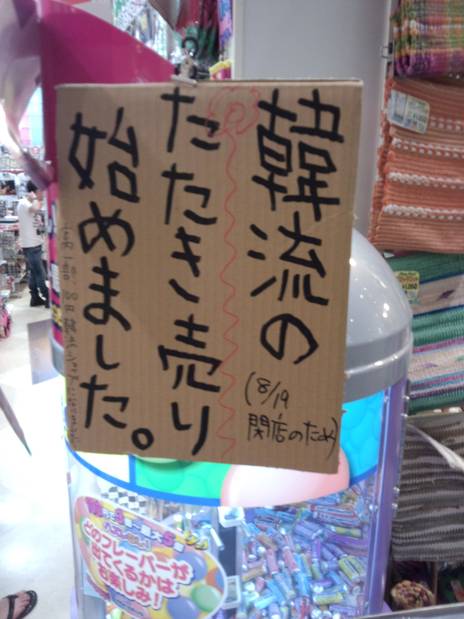 韓流の
たたき売り
始めました。
(8/19
閉店のため)
どのフレーバーが
出てくるかは
お楽しみ!